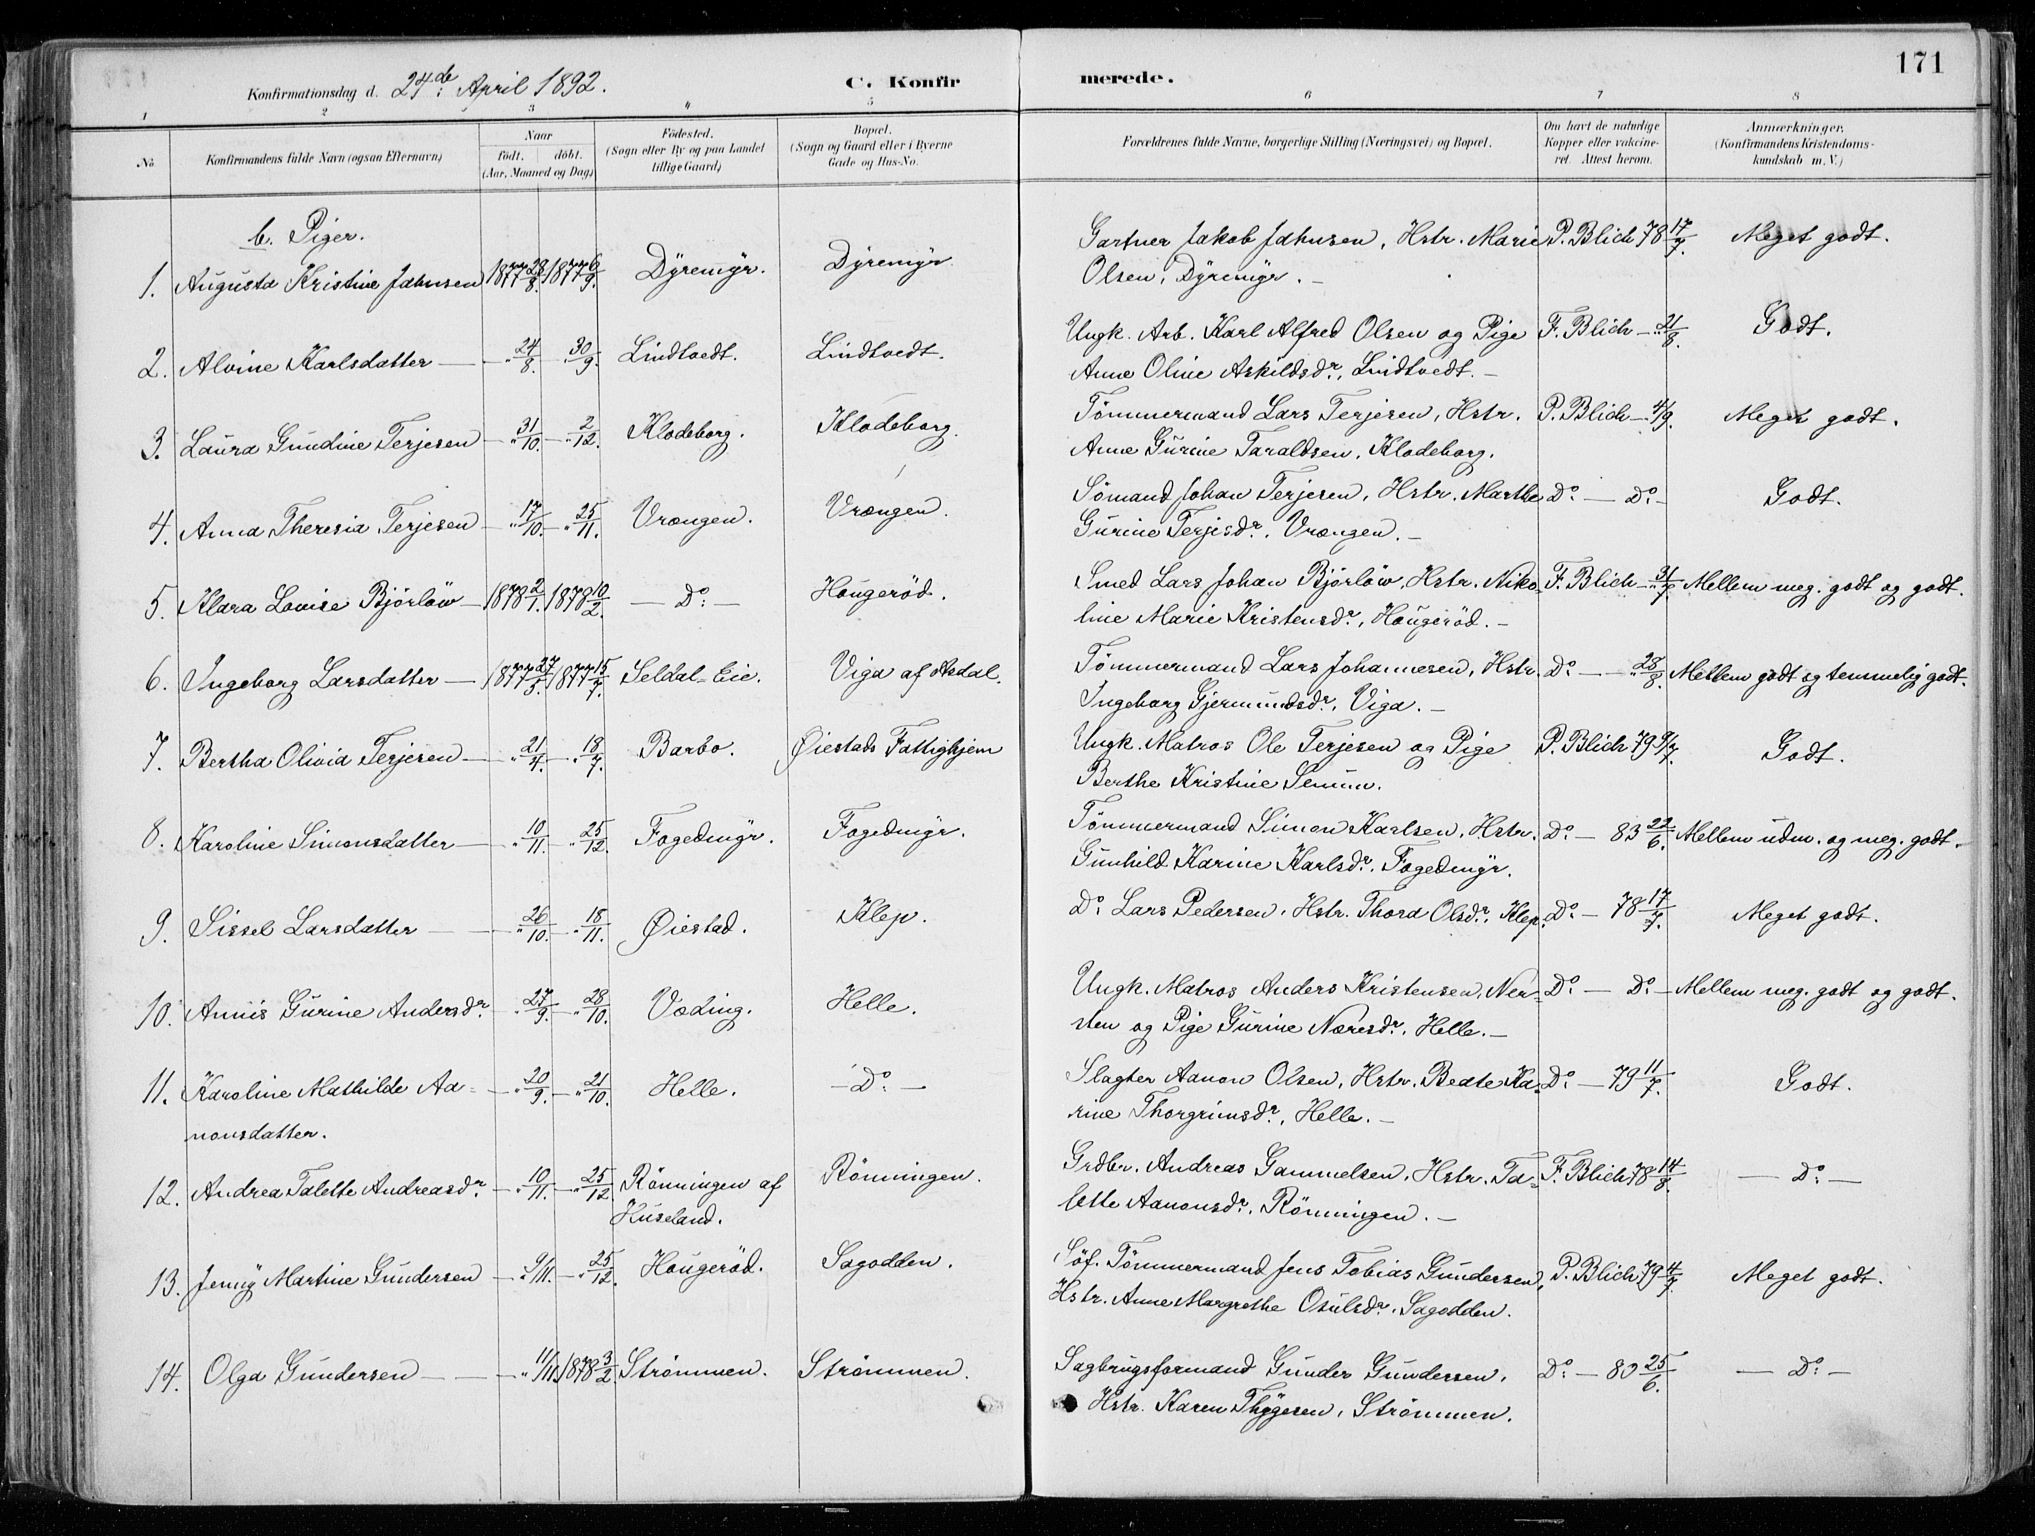 171
Konfirmationsdag d. 24de April 1892. C. Konfirmerede.
1 2 3 4 5 6 7 8
No. Konfirmandens fulde Navn (ogsaa Efternavn) Naar födt. döbt. (Aar, Maaned og Dag) Födested. (Sogn eller By og paa Landet tillige Gaard) Bopæl. (Sogn og Gaard eller i Byerne Gade og Hus-No. Forældrenes fulde Navne, borgerlige Stilling (Næringsvei) og Bopæl. Om havt de naturlige Kopper eller vaccineret. Attest herom. Anmærkninger. (Konfirmandens Kristendomskundskab m. V.)
b. Piger.
1. Augusta Kristine Jahnsen 1877 28/8. 1877 6/9. Dÿremÿr. Dÿremÿr Gartner Jakob Jahnsen, Hstr. Marie P. Blich 78 17/7. Meget godt.
Olsen, Dÿremÿr. –
2. Alvine Karlsdatter — — " 24/8. — " 30/9. Lindtvedt. Lindtvedt. Ungk. Arb. Karl Alfred Olsen og Pige F. Blich — " 21/8. Godt.
Anne Oline Askildsdr., Lindtvedt. –
3. Laura Gundine Terjesen — " 31/10. — " 2/12. Klodeborg. Klodeborg. Tömmermand Lars Terjesen, Hstr. P. Blich — 4/9. Meget godt.
Anne Gurine Taraldsen, Klodeborg.
4. Anna Theresia Terjesen — " 17/10. — " 25/11. Vrængen. Vrængen. Sömand Johan Terjesen, Hstr. Marthe Do. — Do. – Godt.
Gurine Terjesdr., Vrængen. –
5. Klara Lovise Björlöw — 1878 2/1. 1878 10/2. — Do: — Hougeröd. Smed Lars Johan Björlöw, Hstr. Niko- F. Blich — " 31/7 Mellem meg. godt og godt.
line Marie Kristensdr., Hougeröd. –
6. Ingeborg Larsdatter — 1877 27/5. 1877 15/7. Seldal-Eie. Viga af Asdal. Tömmermand Lars Johannesen, Hstr. Do. — " 28/8. Mellem godt og temmelig godt.
Ingeborg Gjermundsdr., Viga. –
7. Bertha Olivia Terjesen — — " 21/4. — " 18/7. Barbo. Øiestads Fattighjem Ungk. Matros Ole Terjesen og Pige P. Blich 79 9/7. Godt.
Berthe Kristine Senum.
8. Karoline Simonsdatter — " 10/11. — " 25/12. Fogedmÿr. Fogedmÿr. Tömmermand Simon Karlsen, Hstr. Do. — 83 22/6. Mellem udm. og meg. godt.
Gunhild Karine Karlsdr., Fogedmÿr.
9. Sissel Larsdatter — — " 26/10. — " 18/11. Øiestad. Klep. Do. Lars Pedersen, Hstr. Thora Olsdr., Klep. Do. — 78 17/7. Meget godt.
10. Annis Gurine Andersdr. — " 27/9. — " 28/10. Væding. Helle. Ungk. Matros Anders Kristensen, Ner- Do. — Do. – Mellem meg. godt og godt.
sten og Pige Gurine Næresdr., Helle. –
11. Karoline Mathilde Aa- — " 20/9. — " 21/10. Helle. – Do – Slagter Aanon Olsen, Hstr. Beate Ka- Do. — 79 11/7. Godt.
nonsdatter. rine Thorgrimsdr., Helle. –
12. Andrea Talette Andreasdr. — " 10/11. — " 25/12. Rönningen af Rönningen. Grdbr. Andreas Gammelsen, Hstr. Ta- F. Blich 78 14/8. — Do: —
Huseland. lette Aanonsdr., Rönningen. –
13. Jennÿ Martine Gundersen — " 9/11. — " 25/12. Hougeröd. Sagodden. Söf. Tömmermand Jens Tobias Gundersen, P. Blich 79 4/7. Meget godt.
Hstr. Anne Margrethe Osulsdr., Sagodden.
14. Olga Gundersen — — — " 11/11. 1878 3/2. Strömmen. Strömmen. Sagbrugsformand Gunder Gundersen, Do. — 80 25/6. — Do: —
Hstr. Karen Thÿgesen, Strömmen.